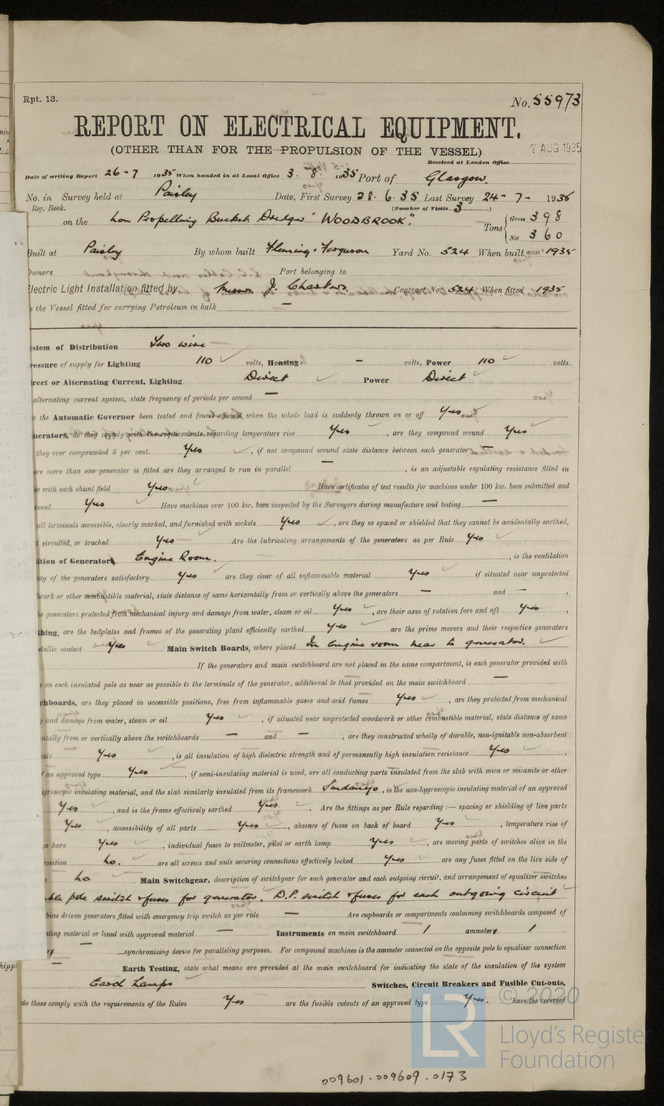 Rpt. 13.
No. 55973
REPORT ON ELECTRICAL EQUIPMENT.
(OTHER THAN FOR THE PROPULSION OF THE VESSEL)
7 AUG 1935
Received at London Office
Date of writing Report 26-7 1935 When handed in at Local Office 3. 8. 1935 Port of Glasgow.
No. in Survey held at Paisley Date, First Survey 28. 6. 35 Last Survey 24-7-1935
Reg. Book. (Number of Visits 3)
on the Non Propelling Bucket Dredger "WOODBROOK". Tons { Gross 398
Net 360
Built at Paisley By whom built Fleming & Ferguson Yard No. 524 When built 1935
Owners Port belonging to
Electric Light Installation fitted by Messrs J. Charters Contract No. 524 When fitted 1935
is the Vessel fitted for carrying Petroleum in bulk —
stem of Distribution Two wire
ressure of supply for Lighting 110 volts, Heating — volts, Power 110 volts.
rect or Alternating Current, Lighting Direct Power Direct
alternating current system, state frequency of periods per second —
s the Automatic Governor been tested and found efficient when the whole load is suddenly thrown on or off Yes
nerators, do they comply with the requirements regarding temperature rise Yes, are they compound wound Yes
they over compounded 5 per cent. Yes, if not compound wound state distance between each generator —
ere more than one generator is fitted are they arranged to run in parallel —, is an adjustable regulating resistance fitted in
s with each shunt field Yes Have certificates of test results for machines under 100 kw. been submitted and
roved Yes Have machines over 100 kw. been inspected by the Surveyors during manufacture and testing —
all terminals accessible, clearly marked, and furnished with sockets Yes, are they so spaced or shielded that they cannot be accidentally earthed,
circuited, or touched Yes Are the lubricating arrangements of the generators as per Rule Yes
ition of Generators Engine Room., is the ventilation
ay of the generators satisfactory Yes are they clear of all inflammable material Yes if situated near unprotected
work or other combustible material, state distance of same horizontally from or vertically above the generators — and —,
e generators protected from mechanical injury and damage from water, steam or oil Yes, are their axes of rotation fore and aft Yes,
thing, are the bedplates and frames of the generating plant efficiently earthed Yes are the prime movers and their respective generators
etallic contact Yes Main Switch Boards, where placed In Engine room near to generator.
If the generators and main switchboard are not placed in the same compartment, is each generator provided with
e on each insulated pole as near as possible to the terminals of the generator, additional to that provided on the main switchboard —
chboards, are they placed in accessible positions, free from inflammable gases and acid fumes Yes, are they protected from mechanical
y and damage from water, steam or oil Yes, if situated near unprotected woodwork or other combustible material, state distance of same
ntally from or vertically above the switchboards — and —, are they constructed wholly of durable, non-ignitable non-absorbent
als Yes, is all insulation of high dielectric strength and of permanently high insulation resistance Yes,
f an approved type Yes, if semi-insulating material is used, are all conducting parts insulated from the slab with mica or micanite or other
ygroscopic insulating material, and the slab similarly insulated from its framework Sindanyo, is the non-hygroscopic insulating material of an approved
Yes, and is the frame effectively earthed Yes. Are the fittings as per Rule regarding :— spacing or shielding of live parts
Yes, accessibility of all parts Yes, absence of fuses on back of board Yes, temperature rise of
s bars Yes, individual fuses to voltmeter, pilot or earth lamp Yes, are moving parts of switches alive in the
osition No. are all screws and nuts securing connections effectively locked Yes are any fuses fitted on the live side of
No Main Switchgear, description of switchgear for each generator and each outgoing circuit, and arrangement of equalizer switches
ble pole switch & fuses for generator. D.P. switch & fuses for each outgoing circuit
bine driven generators fitted with emergency trip switch as per rule — Are cupboards or compartments containing switchboards composed of
ting material or lined with approved material — Instruments on main switchboard 1 ammeters 1
— synchronising device for paralleling purposes. For compound machines is the ammeter connected on the opposite pole to equaliser connection
— Earth Testing, state what means are provided at the main switchboard for indicating the state of the insulation of the system
Earth Lamps Switches, Circuit Breakers and Fusible Cut-outs,
do these comply with the requirements of the Rules Yes are the fusible cutouts of an approved type Yes. have the reversed
© 2020
Lloyd's Register
Foundation
009601-009609-0173